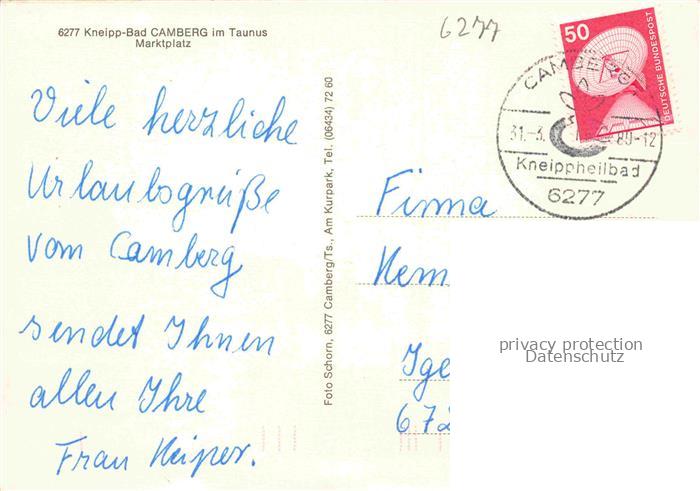 6277 Kneipp-Bad CAMBERG im Taunus
Marktplatz
6277
50
DEUTSCHE BUNDESPOST
CAMBERG
31.-3. 80-12
Kneippheilbad
6277
Viele herzliche
Urlaubsgrüße
vom Camberg
sendet Ihnen
allen Ihre
Frau
Foto Schorn, 6277 Camberg/Ts., Am Kurpark, Tel. (06434) 72 60
Firma
Hem
Ige
672
privacy protection
Datenschutz